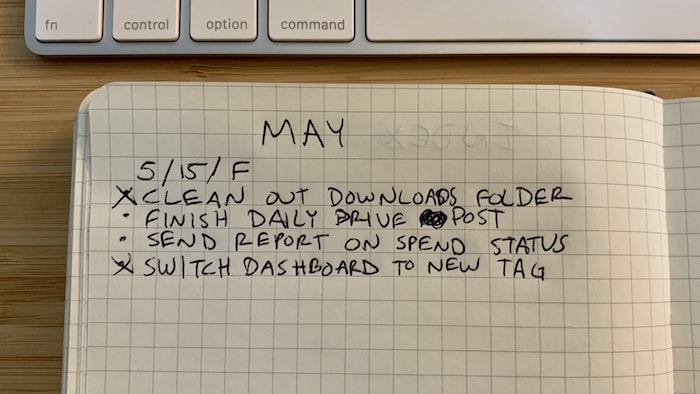 fn
control
option
command
MAY
INDEX
5/15/F
X CLEAN OUT DOWNLOADS FOLDER
• FINISH DAILY DRIVE POST
• SEND REPORT ON SPEND STATUS
X SWITCH DASHBOARD TO NEW TAG